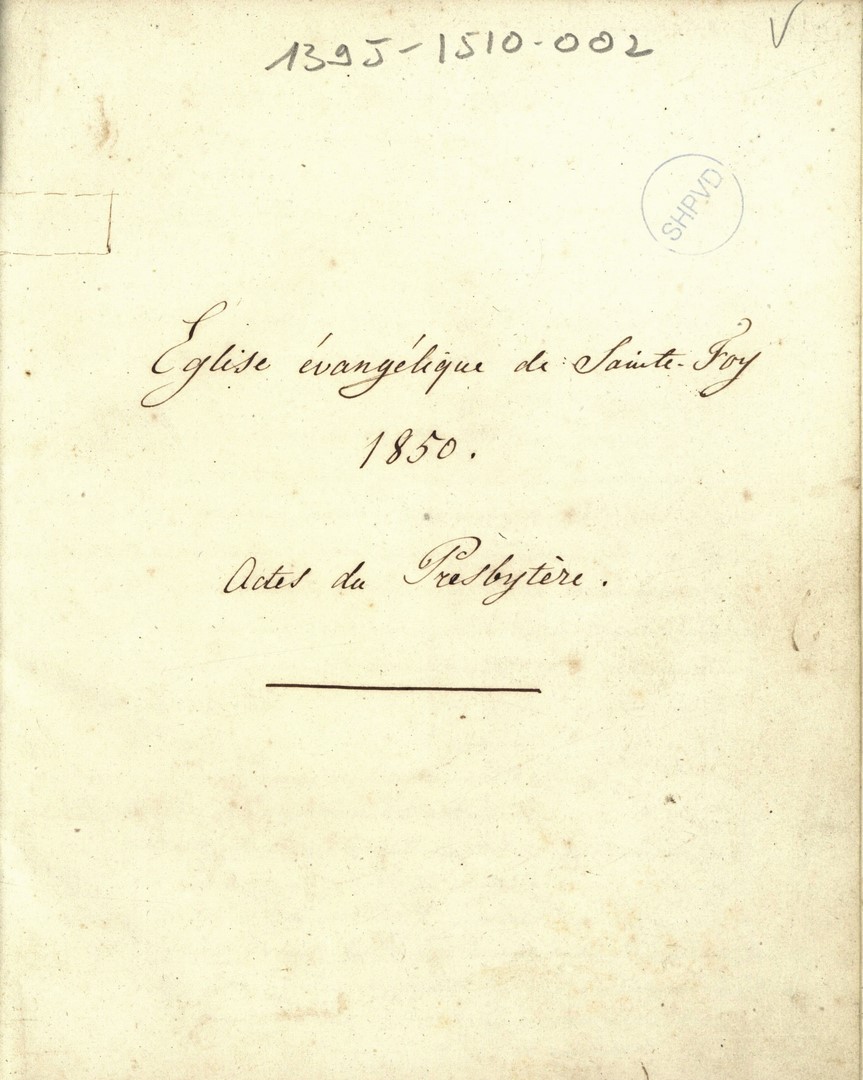 1395-1510-002
V
SHPVD
Eglise évangélique de Sainte-Foy
1850.
Actes du Presbytère.